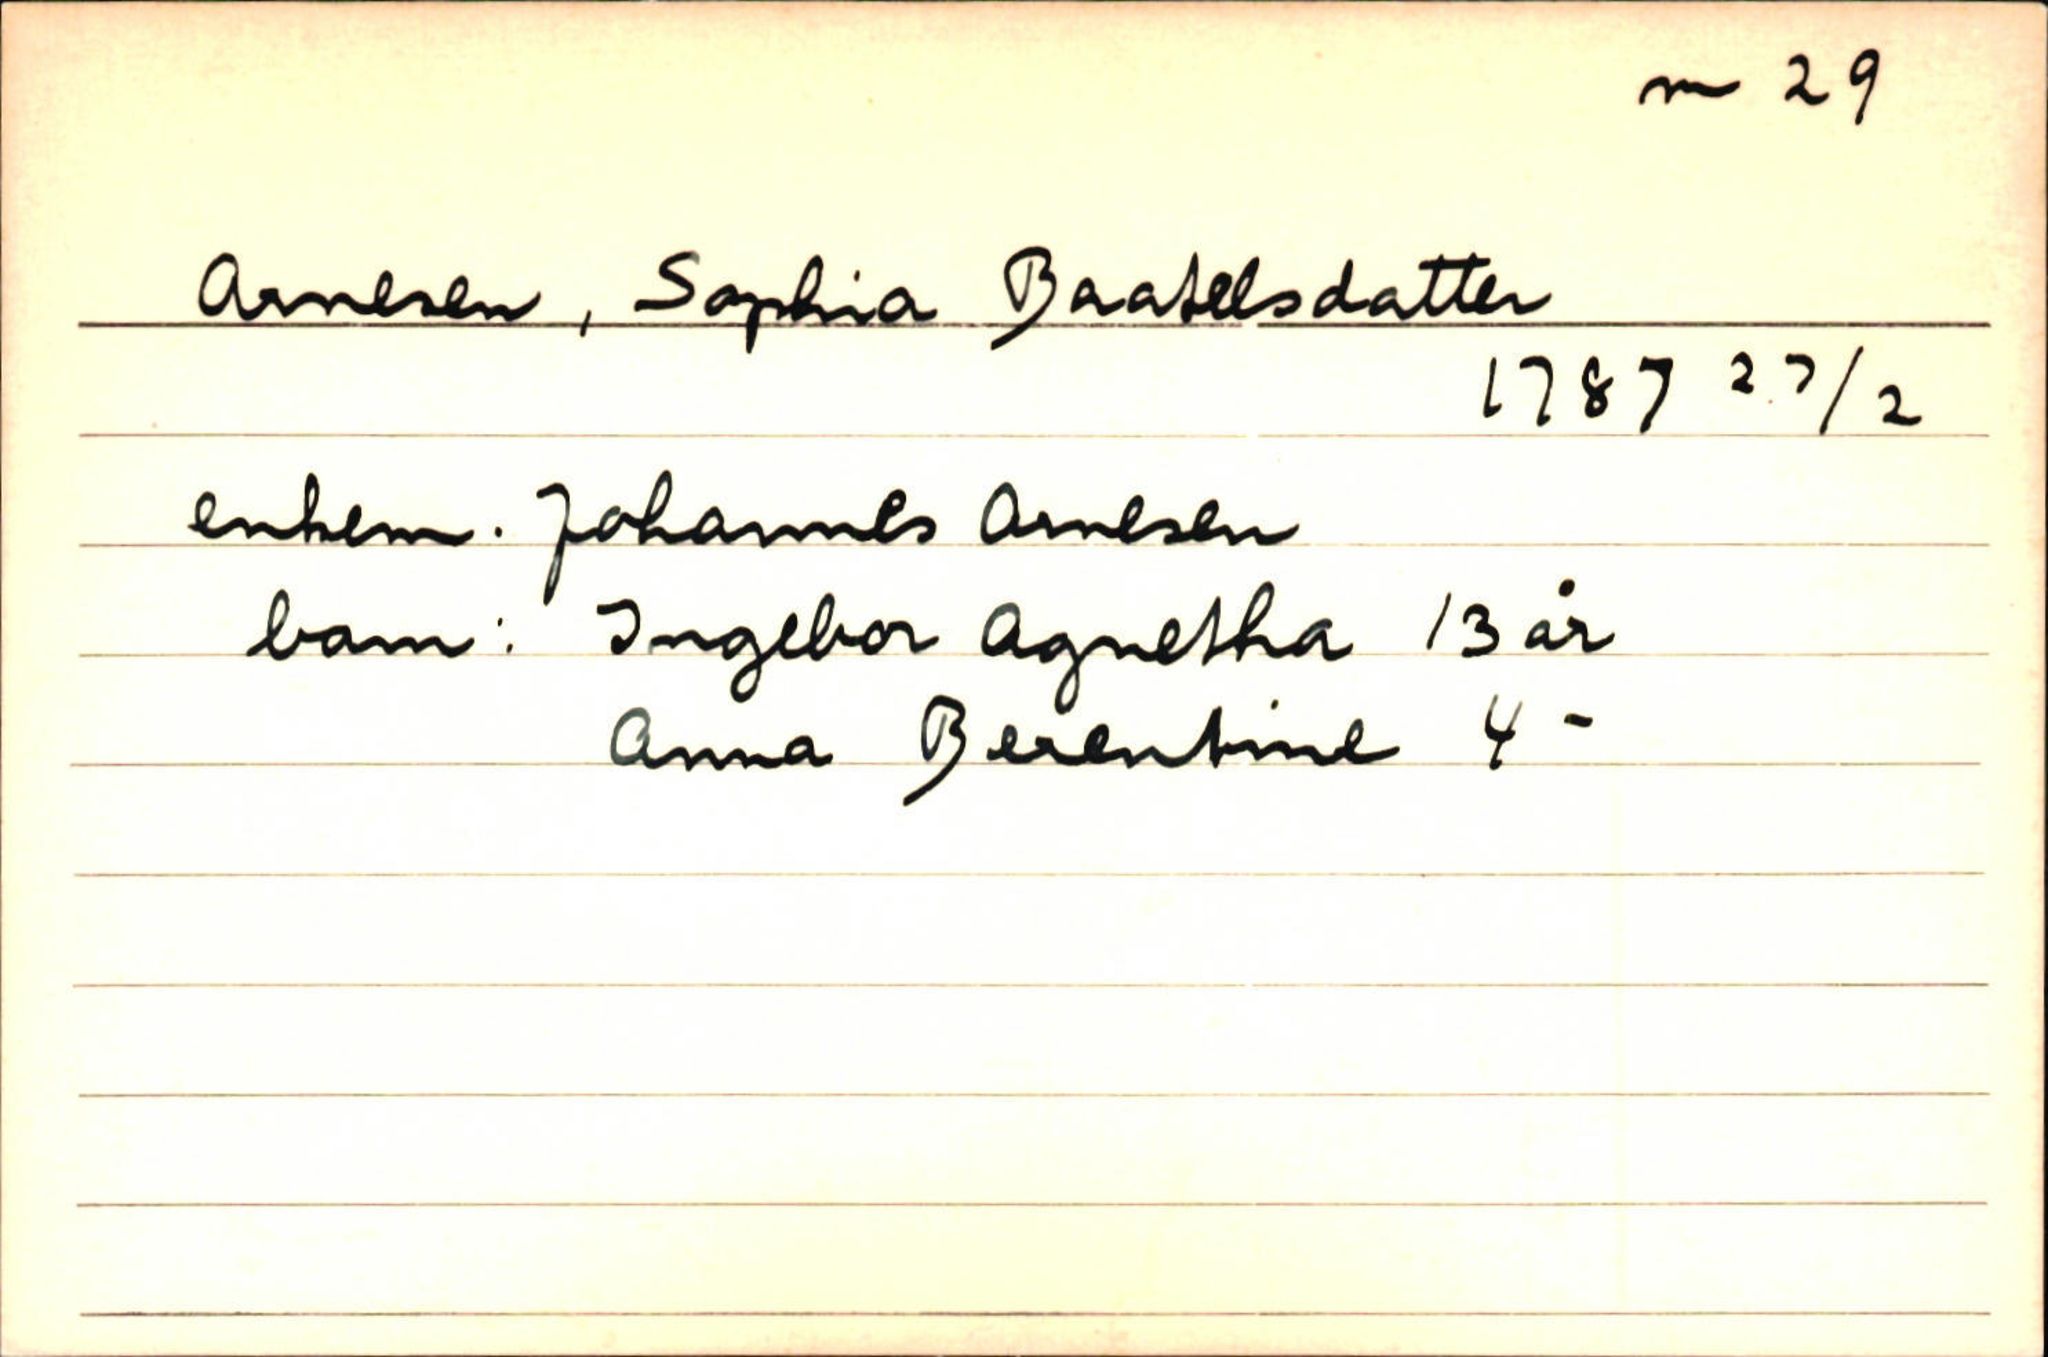 m 29
Arnesen, Sophia Baatelsdatter
1787 27/2
enkem. Johannes Arnesen
barn: Ingebor Agnetha 13 år
Anna Berentine 4 -